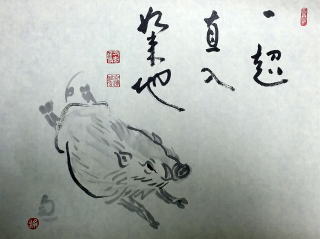 一超
直入
如来地